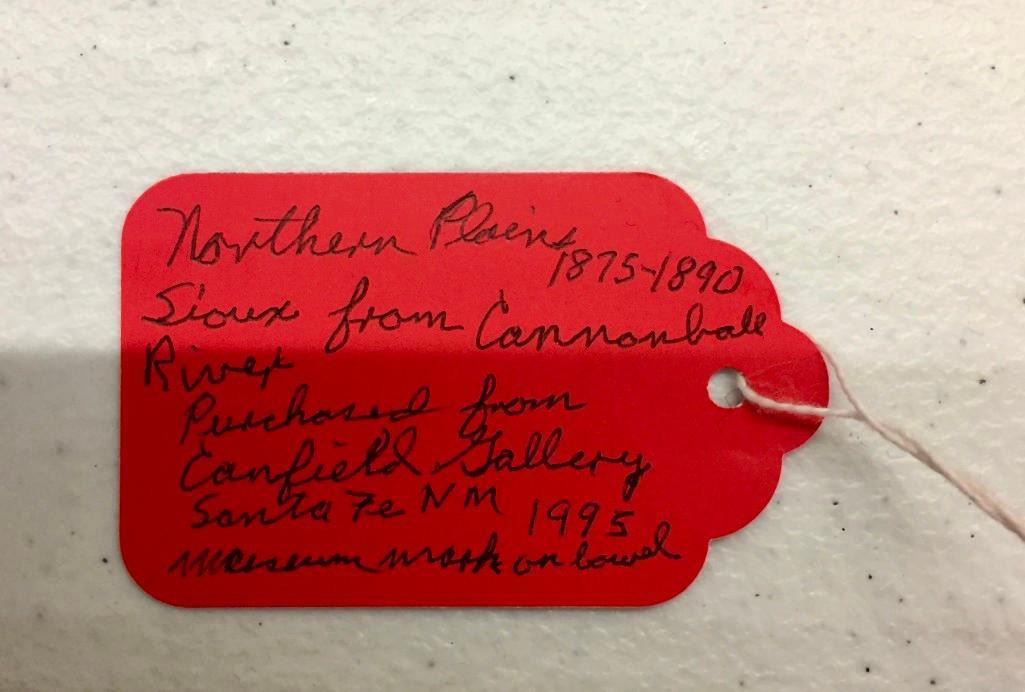 Northern Plains
1875-1890
Sioux from Cannonball
River
Purchased from
Canfield Gallery
Santa Fe NM 1995
museum mark on bowel